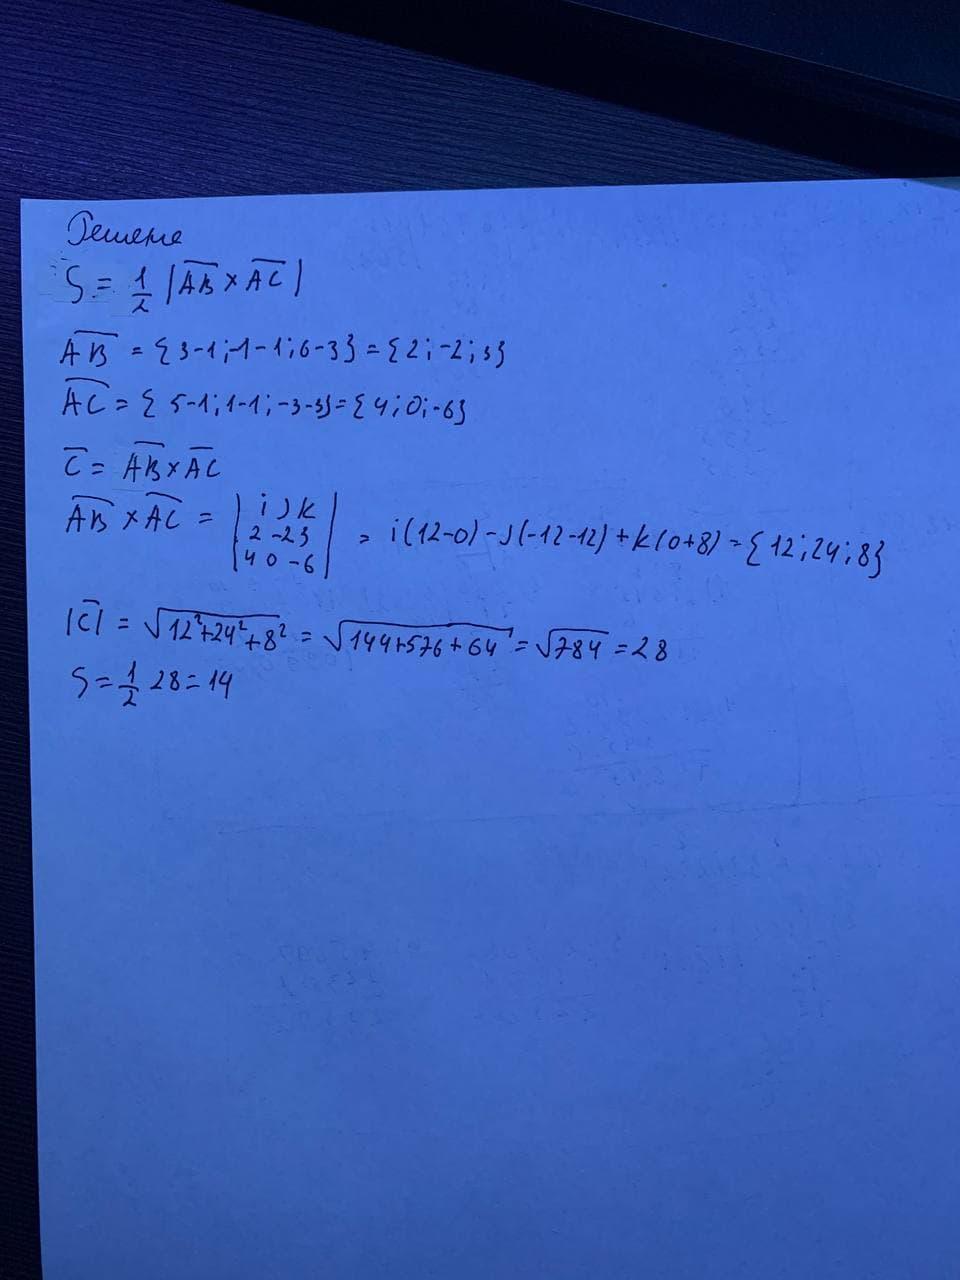 Решение
S = 1/2 |AB × AC|
AB = {3-1; -1-1; 6-3} = {2; -2; 3}
AC = {5-1; 1-1; -3-3} = {4; 0; -6}
C = AB × AC
AB × AC = | i j k | 2 -2 3 | 4 0 -6 | = i(12-0) - j(-12-12) + k(0+8) = {12; 24; 8}
|C| = √12²+24²+8² = √144+576+64 = √784 = 28
S = 1/2 28 = 14